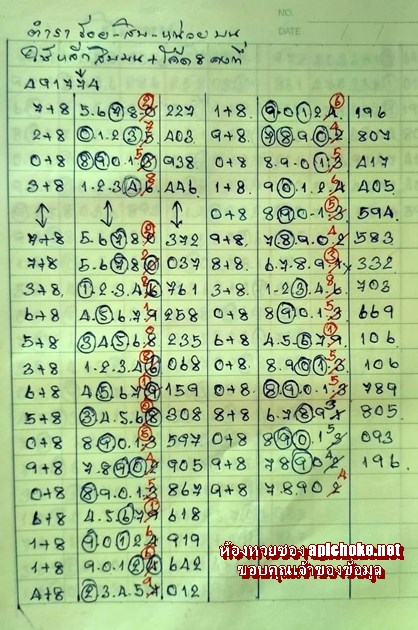 NO.
DATE
ตำรา ร้อย-สิบ-หน่อย บน
491774
7+8 5.6780 227 1+8 9.0124 196
2+8 0.1235 403 9+8 78902 807
0+8 8901 938 0+8 8.9.013 417
3+8 1.2.346 446 1+8 9012 405
0+8 8901 594
7+8 5.678 372 9+8 78902 583
7+8 5.678 037 8+8 6.7.8.9 332
3+8 1.2.3.46 761 3+8 1.2346 703
6+8 4.5679 258 0+8 89013 669
5+8 34568 235 6+8 4.5679 106
3+8 1.2.346 068 0+8 8.9013 106
6+8 45679 159 0+8 890.13 789
5+8 34.568 308 8+8 6.789 805
0+8 89013 597 0+8 89013 093
9+8 7.8902 905 9+8 78902 196
0+8 89.0.13 867 9+8 7.8.902
6+8 4.5679 618
1+8 90124 919
1+8 9.0.124 642
4+8 23.4.5 012
ห้องหวยซอง aplchoke.net
ขอบคุณเจ้าของข้อมูล